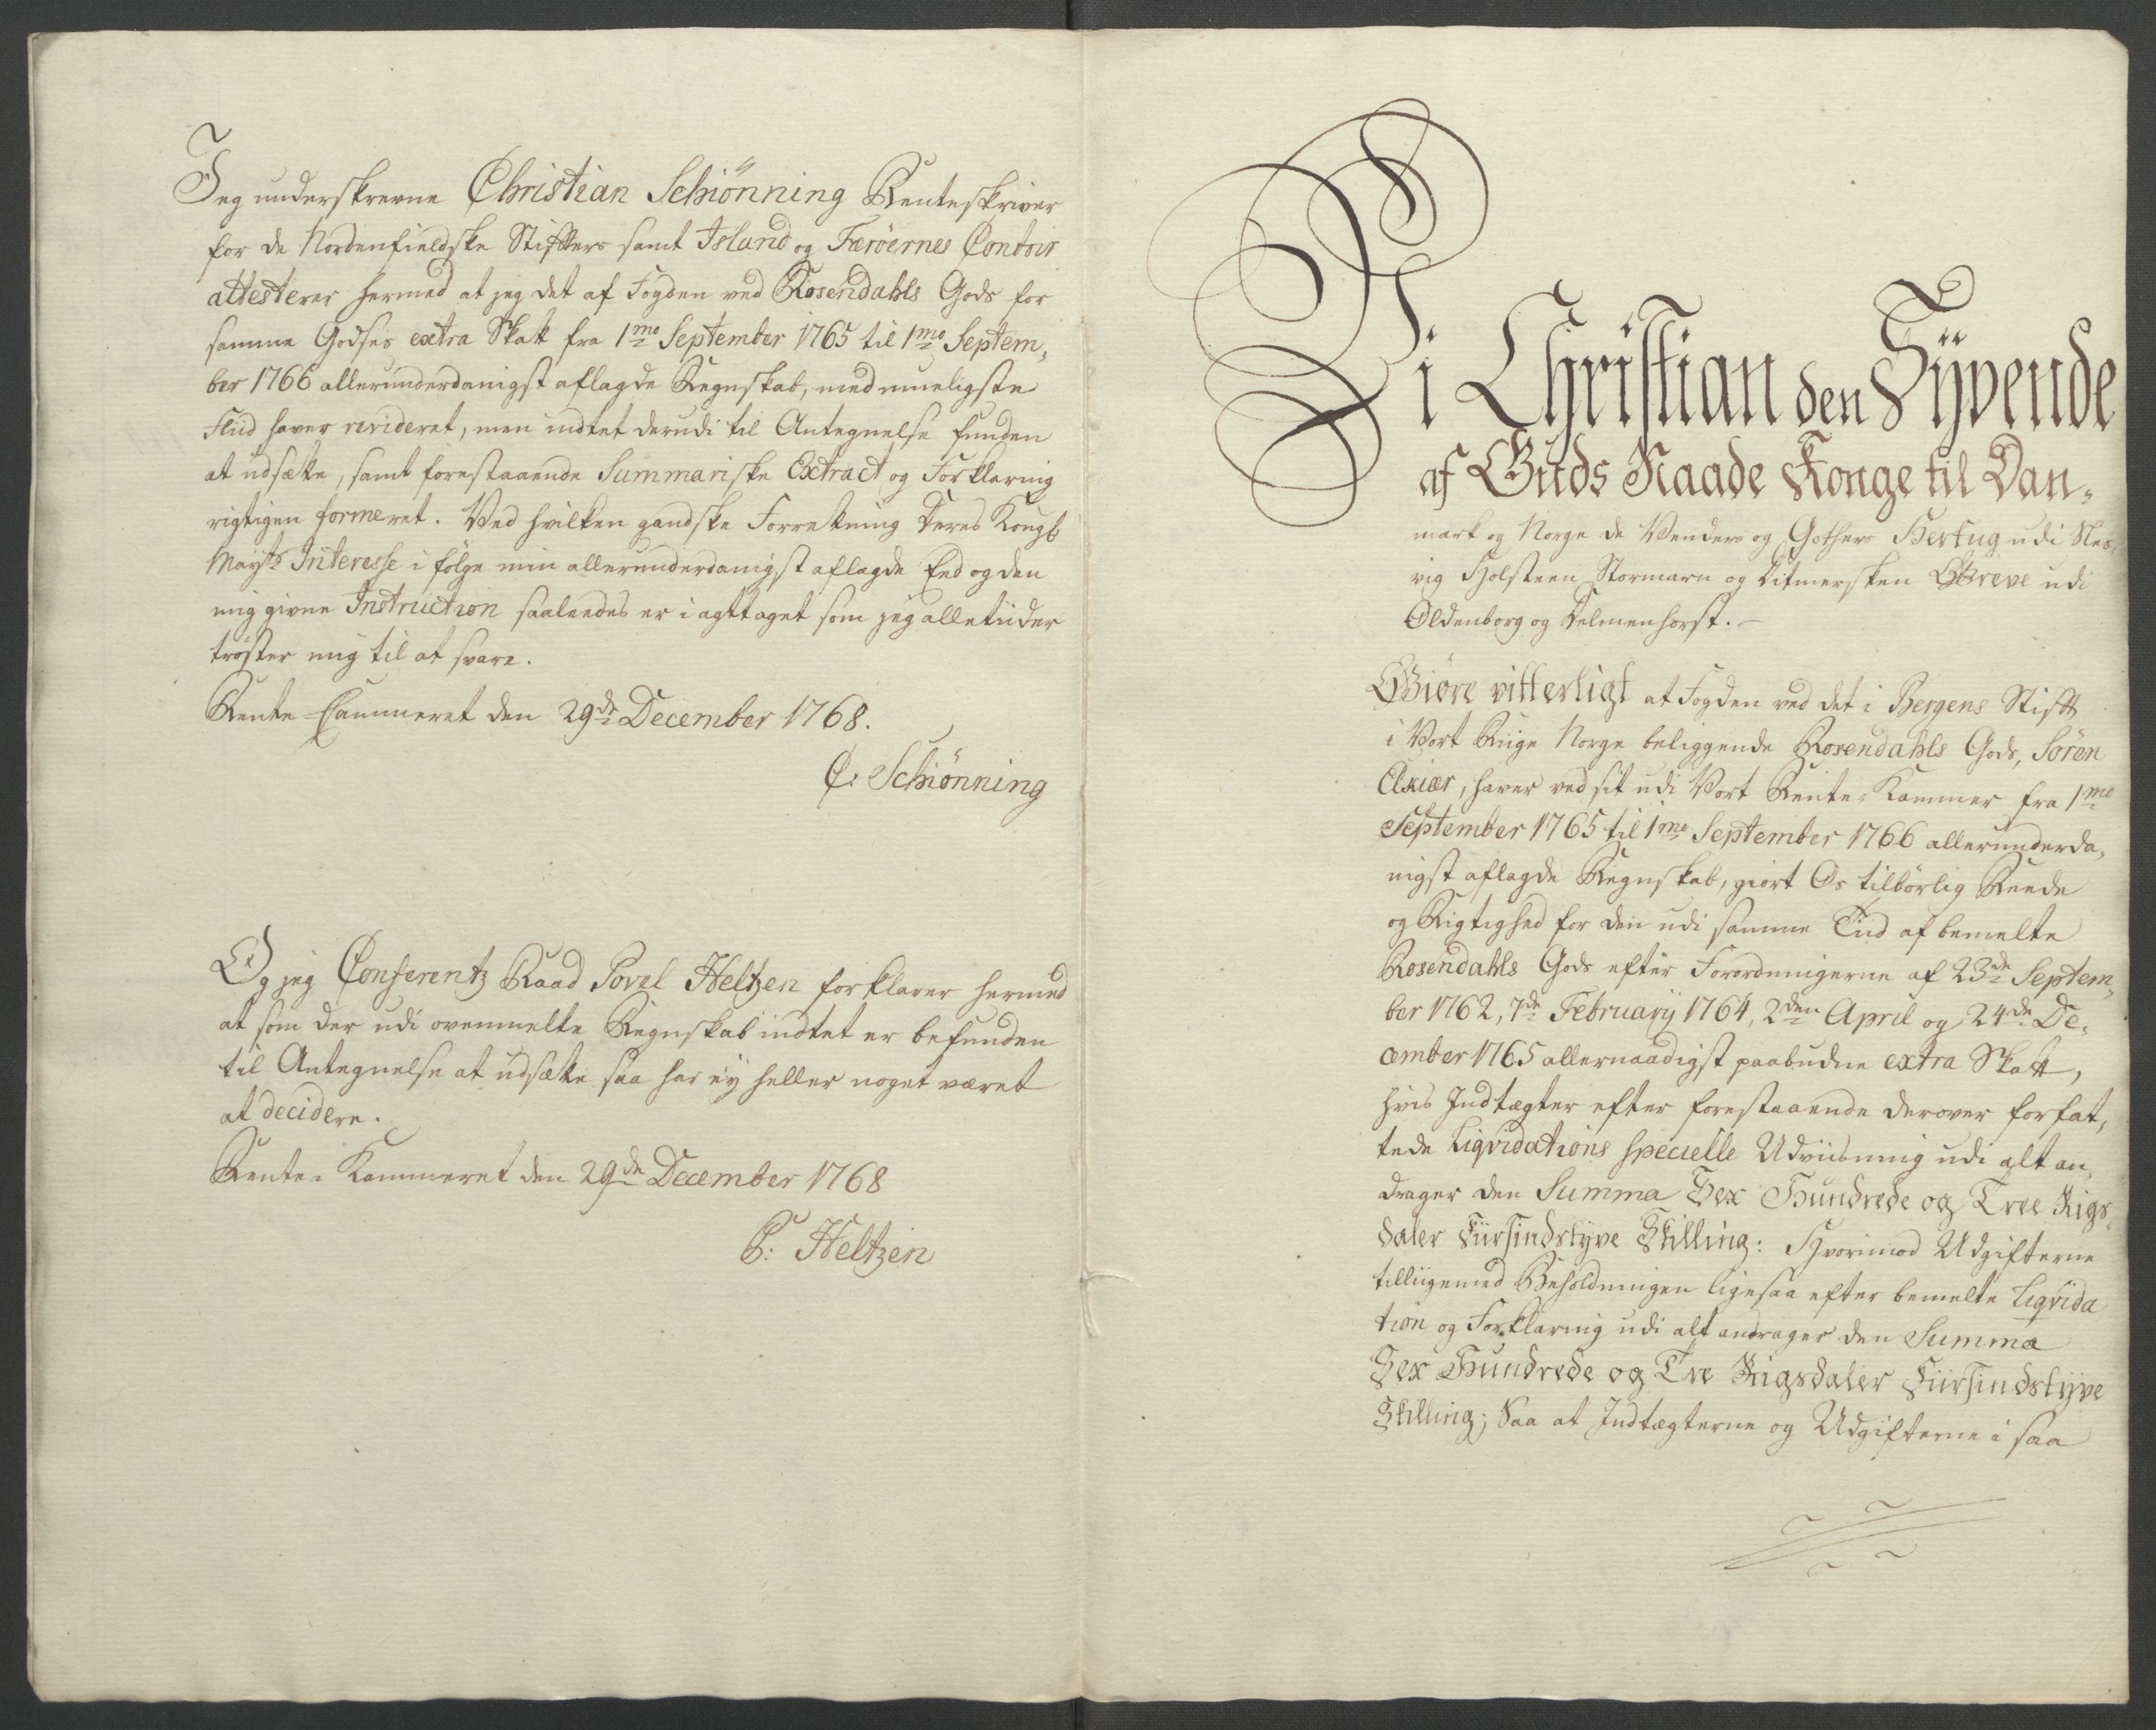 Jeg underskrevne Christian Schiönning Renteskriver
for de Nordenfieldske Stifters samt Island og Færöernes Contoir
attesterer hermed at jeg det af Fogden ved Rosendahls Gods for
samme Godses extra Skatt fra 1mo September 1765 til 1mo Septem¸
ber 1766 allerunderdanigst aflagde Regnskab, med mueligste
Fliid haver revideret, men indtet derudi til Antegnelse funden
at udsætte, samt forestaaende Summariske Extract og Forklaring
rigtigen formeret. Ved hvilken gandske Forretning Deres Kongl
Maysts Interesse i fölge min allerunderdanigst aflagde Eed og den
mig givne Instruction saaledes er i agttaget som jeg alletiider
tröster mig til at svare.
Rente-Cammeret den 29de December 1768.
C: Schiönning
Og jeg Conferentz Raad Povel Heltzen forklarer hermed
at som der udi ovenmelte Regnskab indtet er befunden
til Antegnelse at udsætte saa har ey heller noget været
at decidere.
Rente-Kammeret den 29de December 1768
P: Heltzen
Vi Christian den Syvende
af Guds Naade Konge til Dan¸
mark og Norge de Venders og Gothers Hertug udi Sles¸
vig Holsteen Stormarn og Ditmersken Greve udi
Oldenborg og Delmenhorst.
Giöre vitterligt at Fogden ved det i Bergens Stift
i Vort Riige Norge beliggende Rosendahls Gods, Sören
Claiær, haver ved sit udi Vort Rente-Kammer fra 1mo
September 1765 til 1mo September 1766 allerunderda¸
nigst aflagde Regnskab, giort Os tilbörlig Reede
og Rigtighed for den udi samme Tiid af bemelte
Rosendahls Gods efter Forordningerne af 23de Septem¸
ber 1762, 7de Februarij 1764, 2den April og 24de De¸
cember 1765 allernaadigst paabudne extra Skatt,
hvis Indtægter efter forestaaende derover forfat¸
tede Liqvidations specielle Udviisning udi alt an¸
drager den Summa Sex Hundrede og Tree Rigs¸
daler Fiirsindstyve Skilling: Hvorimod Udgifterne
tilliigemed Beholdningen ligesaa efter bemelte Liqvida
tion og Forklaring udi alt andrager den Summa
Sex Hundrede og Tre Rigsdaler Fiirsindstyve
Skilling; Saa at Indtægterne og Udgifterne i saa